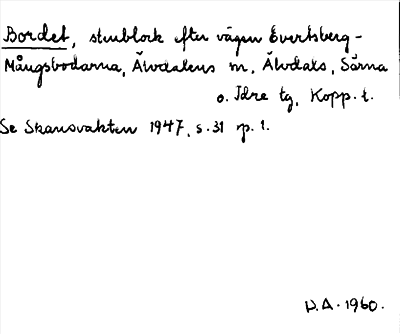 Bordet, stenblock efter vägen Evertsberg-
Mångsbodarna, Älvdalens m, Älvdals, Särna
o. Idre tg, Kopp. l.
Se Skansvakten 1947, s. 31 p. 1.
D.A. 1960.